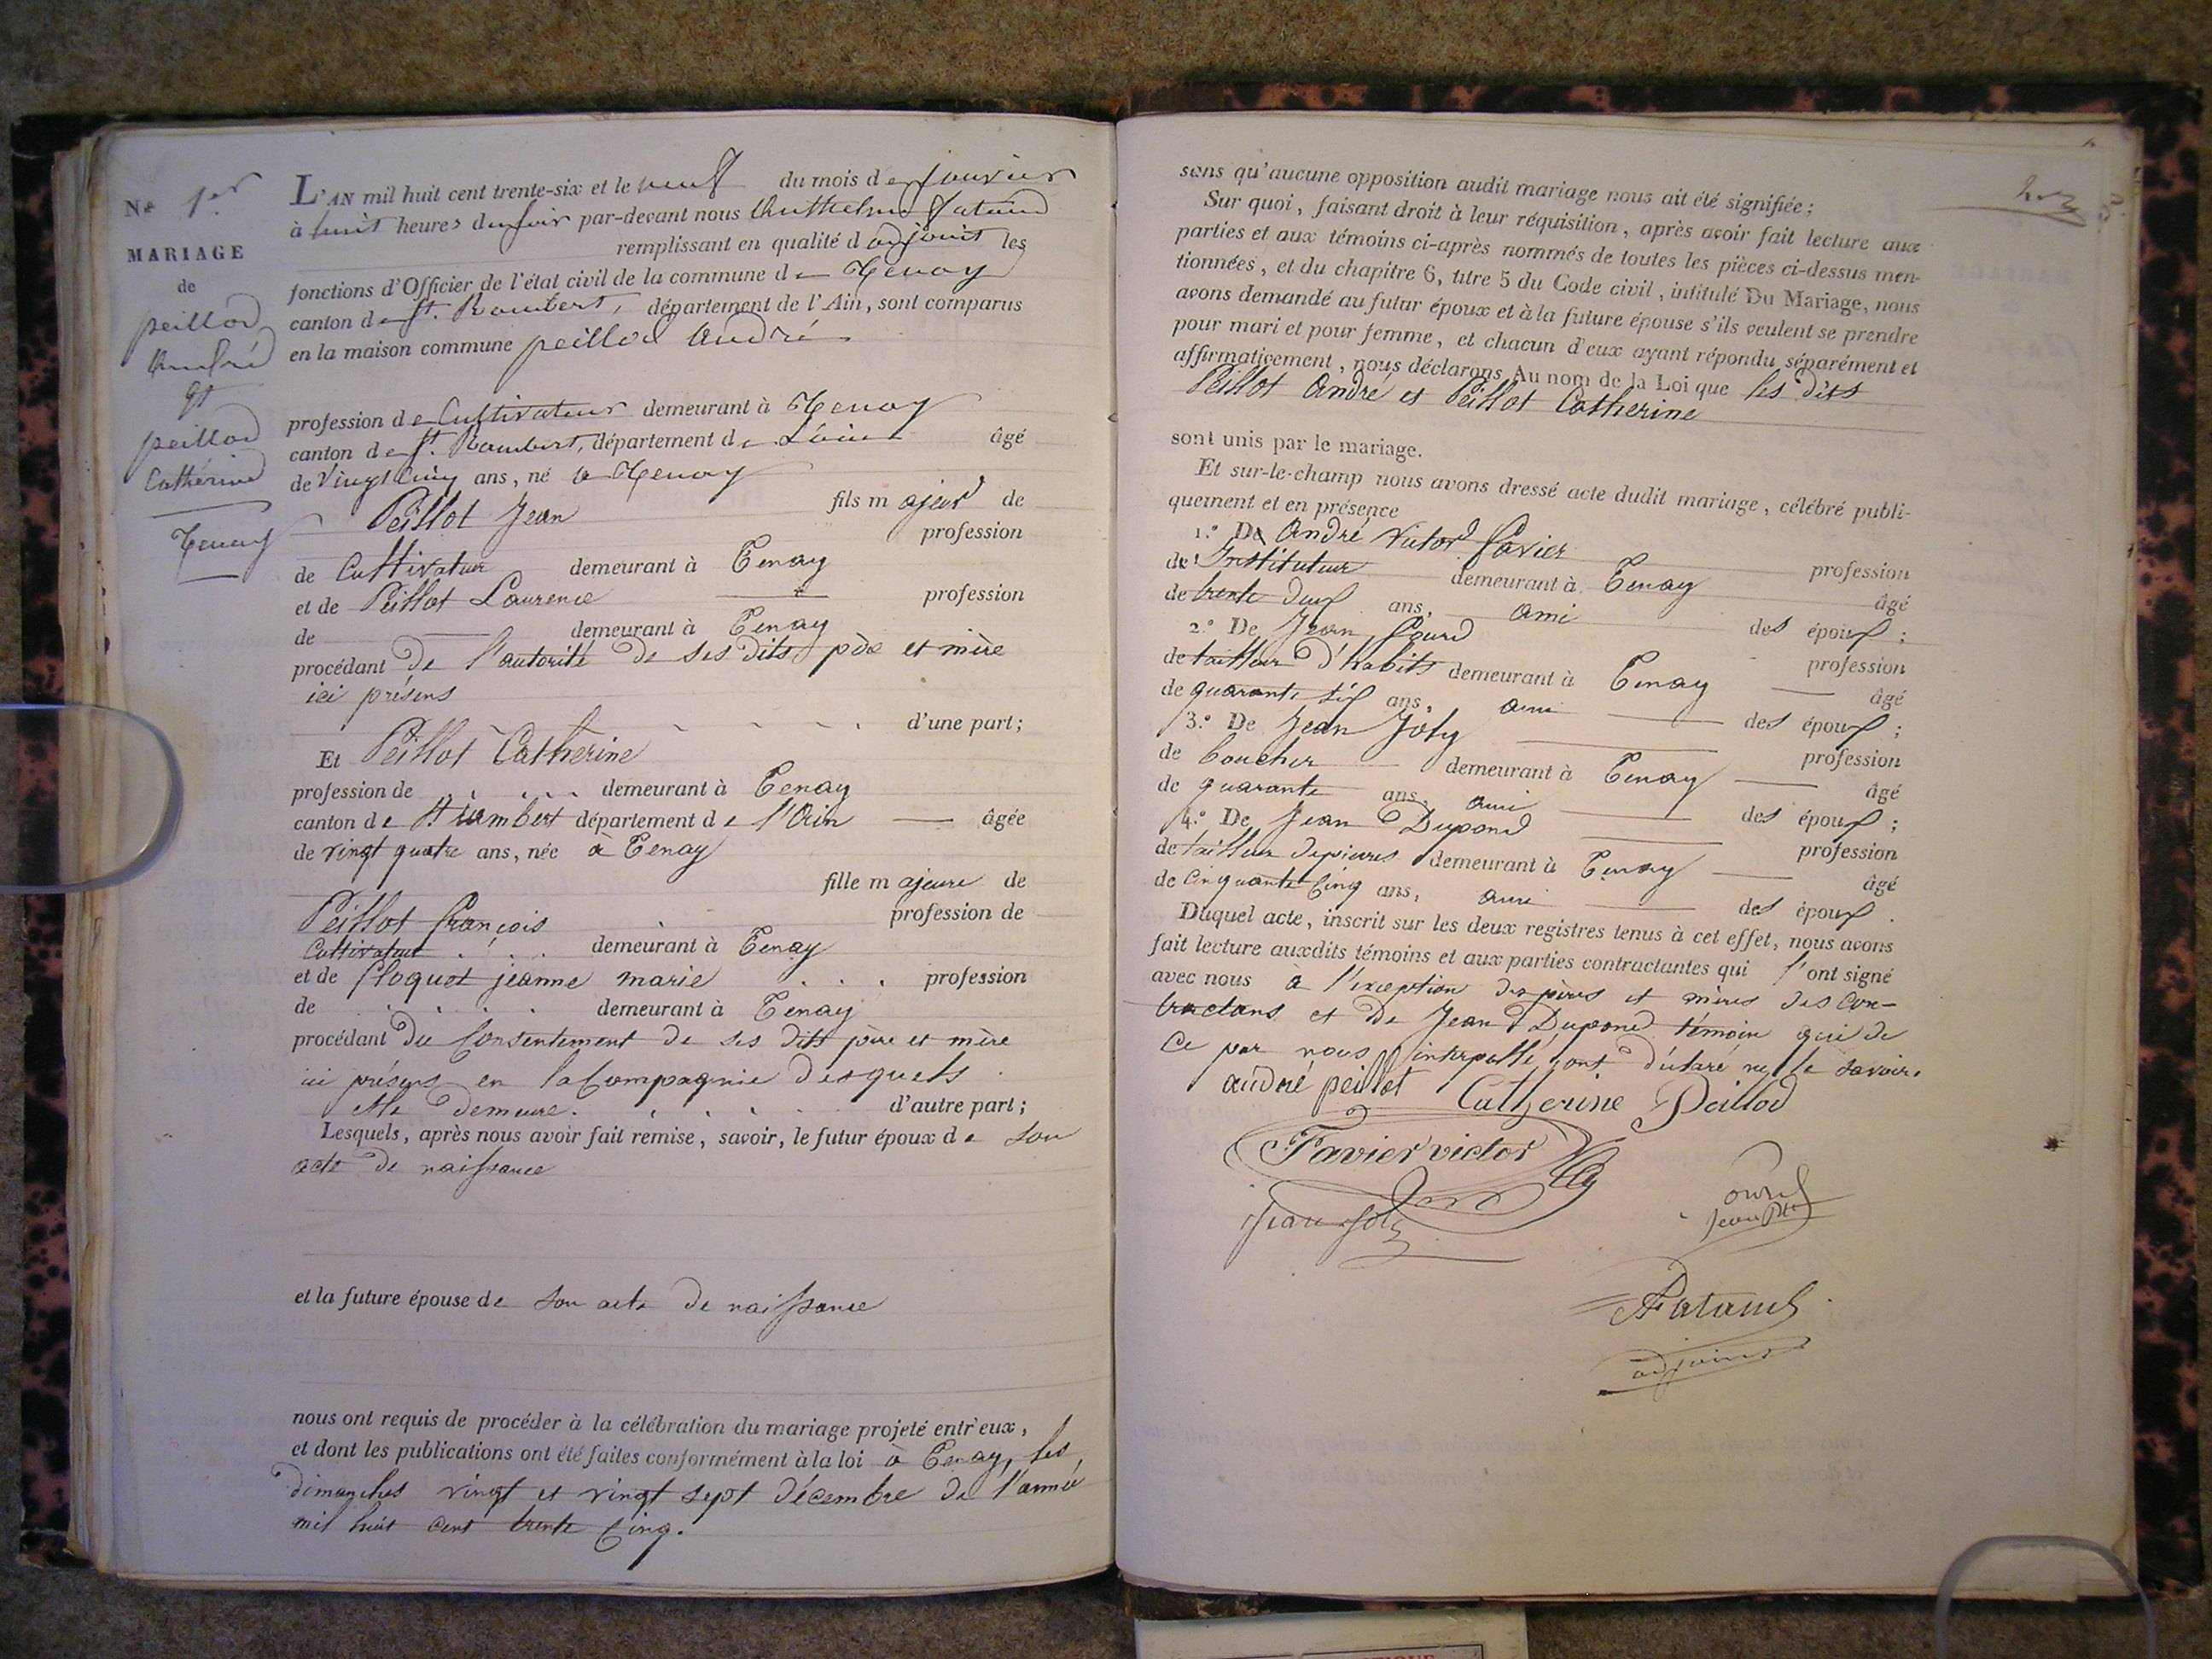 N.º 1.er
MARIAGE
de
peillod
André
Et
peillod
Catherine
Tenay
L'AN mil huit cent trente-six et le neuf du mois de janvier
à huit heures du soir par-devant nous Anthelme
remplissant en qualité d'adjoint les
fonctions d'Officier de l'état civil de la commune de Tenay
canton de St. Rambert, département de l'Ain, sont comparus
en la maison commune peillod André
profession de Cultivateur demeurant à Tenay
canton de St. Rambert, département de L'ain âgé
de Vingt Cinq ans, né à Tenay
fils majeur de
Peillot Jean profession
de Cultivateur demeurant à Tenay
et de Peillot Laurence profession
de demeurant à Tenay
procédant De l'autorité de ses dits père et mère
ici présens
d'une part;
Et Peillot Catherine
profession de . . . . demeurant à Tenay
canton de St Rambert département de l'Ain âgée
de vingt quatre ans, née à Tenay
fille majeure de
Peillot françois profession de
Cultivateur . . . demeurant à Tenay
et de Floquet jeanne marie . . . profession
de . . . . . demeurant à Tenay
procédant Du Consentement de ses dits père et mère
ici présens en la Compagnie desquels
elle demeure. . . . . d'autre part;
Lesquels, après nous avoir fait remise, savoir, le futur époux de son
acte de naissance
et la future épouse de son acte de naissance
nous ont requis de procéder à la célébration du mariage projeté entr'eux,
et dont les publications ont été faites conformément à la loi à Tenay, les
dimanches vingt et vingt sept décembre de l'année
mil huit cent trente cinq.
sans qu'aucune opposition audit mariage nous ait été signifiée;
Sur quoi, faisant droit à leur réquisition, après avoir fait lecture aux
parties et aux témoins ci-après nommés de toutes les pièces ci-dessus men-
tionnées, et du chapitre 6, titre 5 du Code civil, intitulé Du Mariage, nous
avons demandé au futur époux et à la future épouse s'ils veulent se prendre
pour mari et pour femme, et chacun d'eux ayant répondu séparément et
affirmativement, nous déclarons Au nom de la Loi que les dits
Peillot André et Peillot Catherine
sont unis par le mariage.
Et sur-le-champ nous avons dressé acte dudit mariage, célébré publi-
quement et en présence
1.º De André Victor Favier profession
de Instituteur demeurant à Tenay âgé
de trente deux ans, ami des époux;
2.º De Jean profession
de tailleur d'habits demeurant à Tenay âgé
de quarante six ans, ami des époux;
3.º De Jean Joly profession
de boucher demeurant à Tenay âgé
de quarante ans, ami des époux;
4.º De Jean Dupond profession
de tailleur de pierres demeurant à Tenay âgé
de Cinquante Cinq ans, ami des époux.
Duquel acte, inscrit sur les deux registres tenus à cet effet, nous avons
fait lecture auxdits témoins et aux parties contractantes qui l'ont signé
avec nous à l'exception des pères et mères des Con-
tractans et De Jean Dupond témoin qui de
ce par nous interpellé ont déclaré ne le savoir.
andré peillot Catherine Peillod
Favier victor
Jean Joly
adjoint